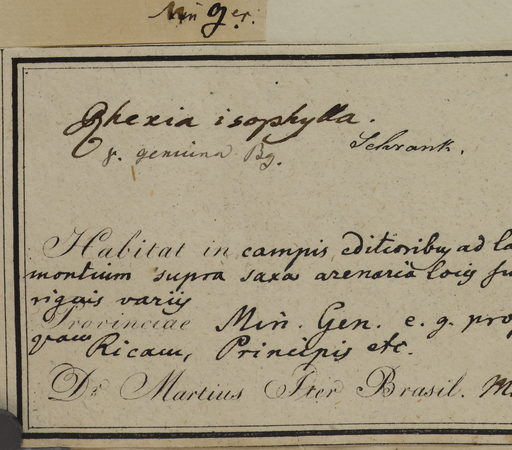 Min ger.
Rhexia isophylla.
Schrank.
γ. genuina Bg.
Habitat in campis editioribus ad la
montium supra saxa arenaria locis su
riguis variis
Provinciae Min. Gen. e. g. prop
quam Ricam, Principis etc.
Dr Martius Iter Brasil. M